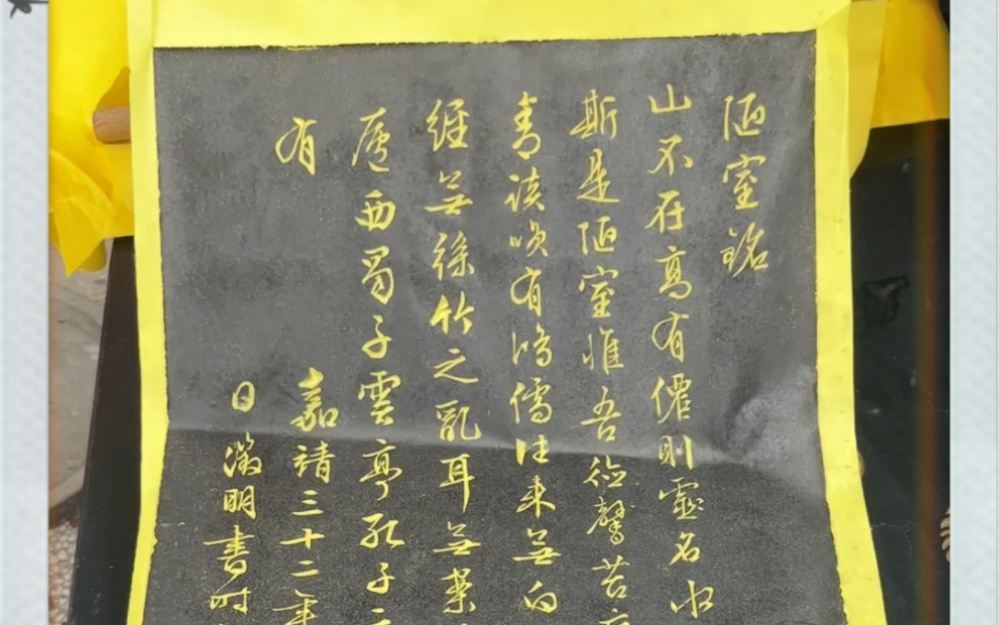 陋室銘
山不在高有僊則靈名水
斯是陋室惟吾德馨苔
青談咲有鴻儒往来無白
經無絲竹之亂耳無案
廬西蜀子雲亭孔子云
有
嘉靖三十二年
日徵明書時